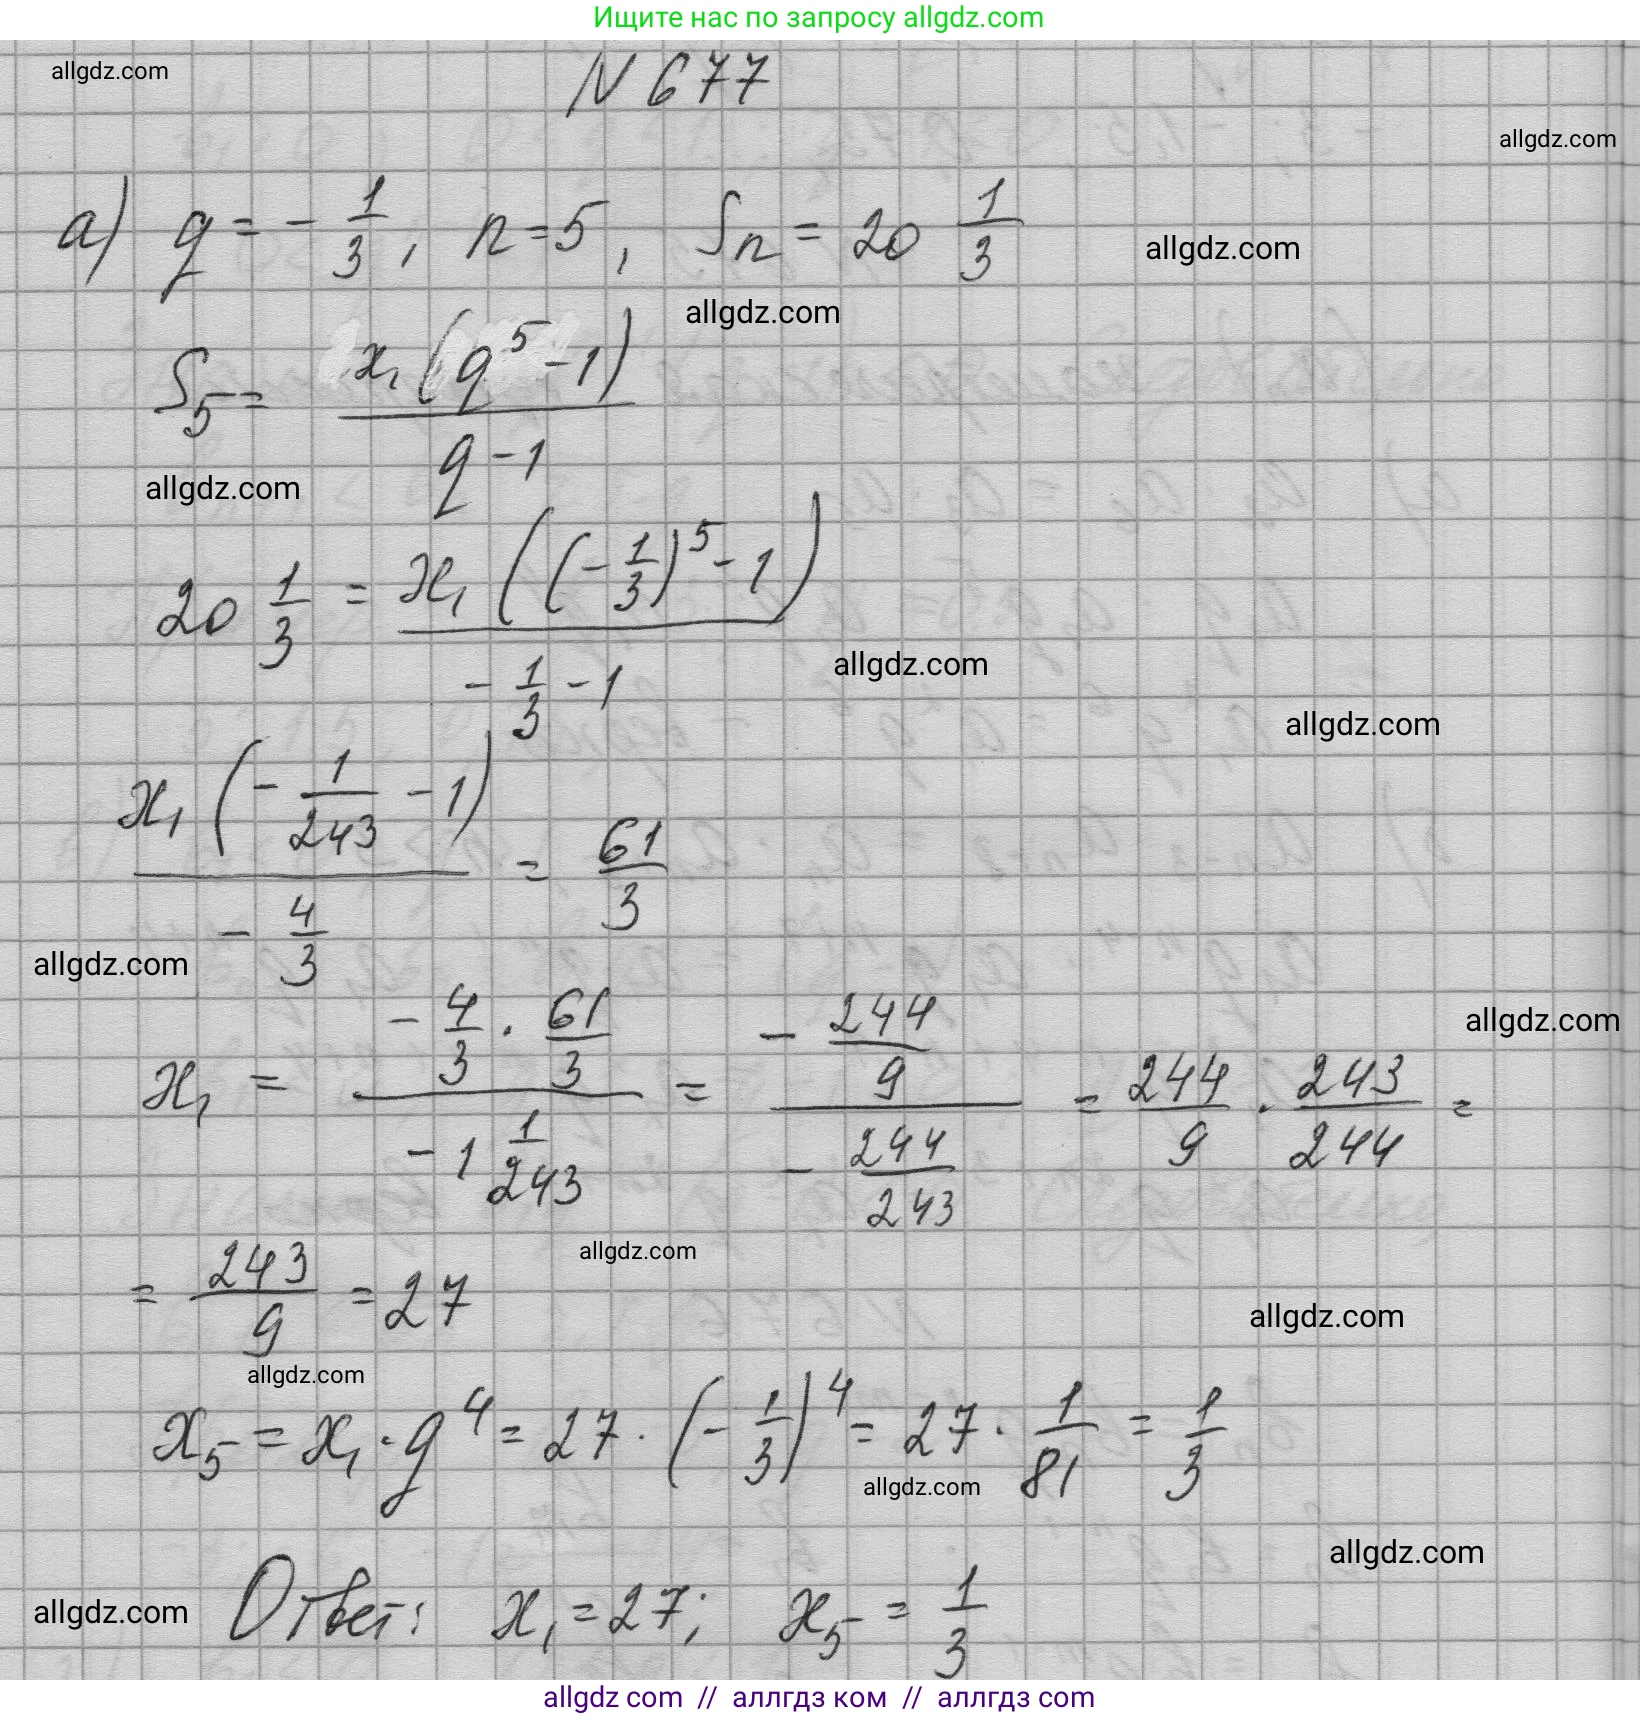 Ищите нас по запросу allgdz.com
allgdz.com
N 677
allgdz.com
а) q = - 1/3, n = 5, Sn = 20 1/3
allgdz.com
allgdz.com
S₅ = x₁(q⁵ - 1) / q - 1
allgdz.com
20 1/3 = x₁((-1/3)⁵ - 1) / -1/3 - 1
allgdz.com
allgdz.com
x₁(-1/243 - 1) / -4/3 = 61/3
allgdz.com
allgdz.com
x₁ = -4/3 · 61/3 / -1 1/243 = -244/9 / -244/243 = 244/9 · 243/244 =
allgdz.com
= 243/9 = 27
allgdz.com
allgdz.com
x₅ = x₁ · q⁴ = 27 · (-1/3)⁴ = 27 · 1/81 = 1/3
allgdz.com
allgdz.com
allgdz.com
Ответ: x₁ = 27; x₅ = 1/3
allgdz com // аллгдз ком // аллгдз com